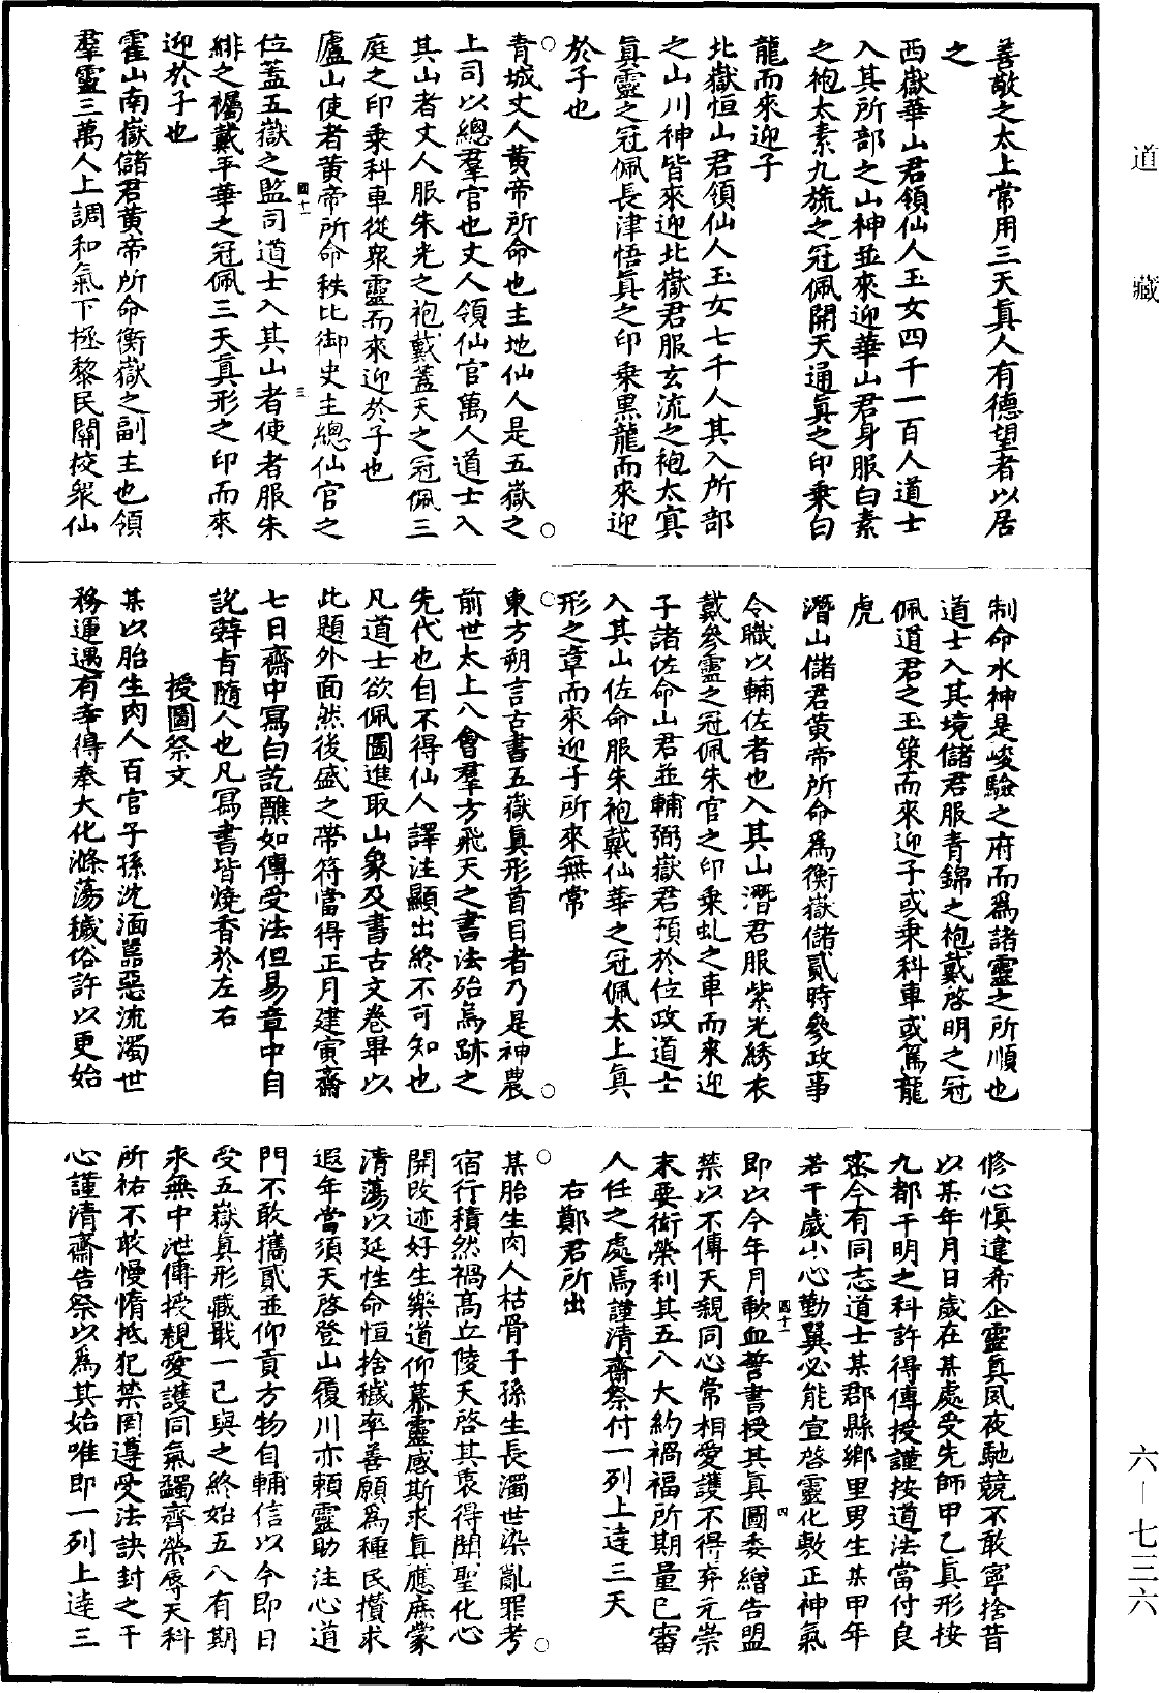 道藏
善敵之太上常用三天眞人有德望者以居
之
西嶽華山君領仙人玉女四千一百人道士
入其所部之山神並來迎華山君身服白素
之袍太素九旒之冠佩開天通眞之印乗白
龍而來迎子
北嶽恒山君領仙人玉女七千人其入所部
之山川神皆來迎北嶽君服玄流之袍太㝠
眞靈之冠佩長津悟眞之印乗黒龍而來迎
於子也
青城丈人黄帝所命也主地仙人是五嶽之
上司以總羣官也丈人領仙官萬人道士入
其山者丈人服朱光之袍戴蓋天之冠佩三
庭之印乗科車從衆靈而來迎於子也
廬山使者黄帝所命秩比御史主總仙官之
國十一 三
位蓋五嶽之監司道士入其山者使者服朱
緋之襡戴平華之冠佩三天眞形之印而來
迎於子也
霍山南嶽儲君黄帝所命衡嶽之副主也領
羣靈三萬人上調和氣下拯黎民闗挍衆仙
制命水神是峻驗之府而爲諸靈之所順也
道士入其境儲君服青錦之袍戴啓明之冠
佩道君之玉策而來迎子或乗科車或駕龍
虎
潛山儲君黄帝所命爲衡嶽儲貳時參政事
令職以輔佐者也入其山潛君服紫光綉衣
戴參靈之冠佩朱官之印乗虬之車而來迎
子諸佐命山君並輔弼嶽君預於位政道士
入其山佐命服朱袍戴仙華之冠佩太上眞
形之章而來迎子所來無常
東方朔言古書五嶽眞形首目者乃是神農
前世太上八會羣方飛天之書法殆鳥跡之
先代也自不得仙人譯注顯出終不可知也
凡道士欲佩圖進取山象及書古文卷畢以
此題外面然後盛之帶符當得正月建寅齋
七日齋中寫白訖醮如傳受法但易章中自
説辭旨隨人也凡寫書皆燒香於左右
授圖祭文
某以胎生肉人百官子孫沈湎嚚惡流濁世
務運遇有幸得奉大化滌蕩穢俗許以更始
修心慎違希企靈眞夙夜馳競不敢寧捨昔
以某年月日歳在某處受先師甲乙眞形按
九都千明之科許得傳授謹按道法當付良
密今有同志道士某郡縣鄉里男生某甲年
若干歳小心勤翼必能宣啓靈化敷正神氣
國十一 四
即以今年月軟血誓書授其眞圖委繒告盟
禁以不傳天親同心常相愛護不得弃元崇
末要術榮利其五八大約禍福所期量已審
人任之處焉謹清齋祭付一列上逹三天
右鄭君所出
某胎生肉人枯骨子孫生長濁世染亂罪考
宿行積然禍高丘陵天啓其衷得聞聖化心
開改迹好生樂道仰慕靈感斯求眞應庶蒙
清蕩以延性命恒捨穢率善願爲種民攢求
遐年當須天啓登山履川亦頼靈助注心道
門不敢攜貳並仰貢方物自輔信以今即日
受五嶽眞形藏戢一己與之終始五八有期
求無中泄傳授親愛護同氣蠲齊榮辱天科
所祐不敢慢惰抵犯禁罔遵受法訣封之干
心謹清齋告祭以爲其始唯即一列上逹三
六－七三六